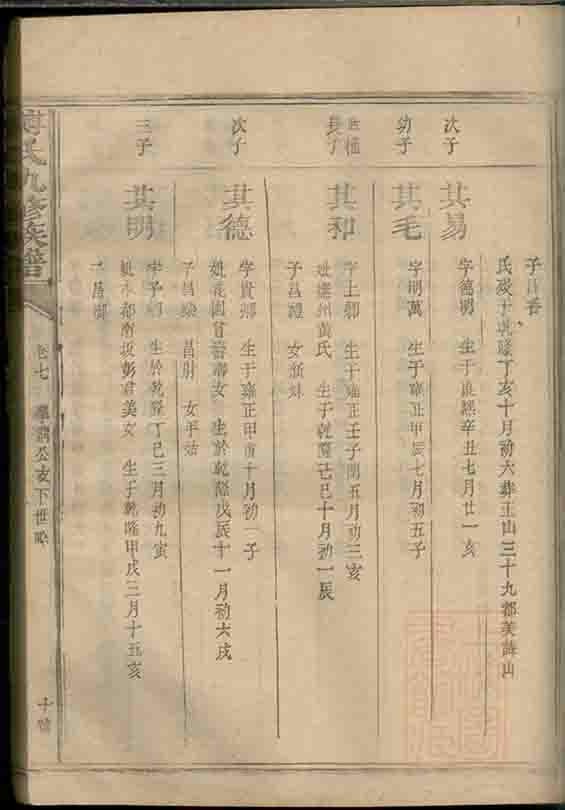 子昌
氏歿于乾隆丁亥十月初六葬王山三十九都美
次子
其易
字德明 生于康熙辛丑七月廿一亥
幼子
其毛
字明萬 生于雍正甲辰七月初五子
長子
其和
字上卿 生于雍正壬子閏五月初三亥
妣 州黄氏 生于乾隆己巳十月初一辰
子昌禮 女
次子
其德
字貴卿 生于雍正甲寅十月初二子
妣花園 女 生於乾隆戊辰十一月初六戌
子昌 昌 女
三子
其明
字 生於乾隆丁巳三月初九寅
妣水都南坂彭君美女 生于乾隆甲戌三月十五亥
子昌
氏九修族譜
卷七
公支下世
十